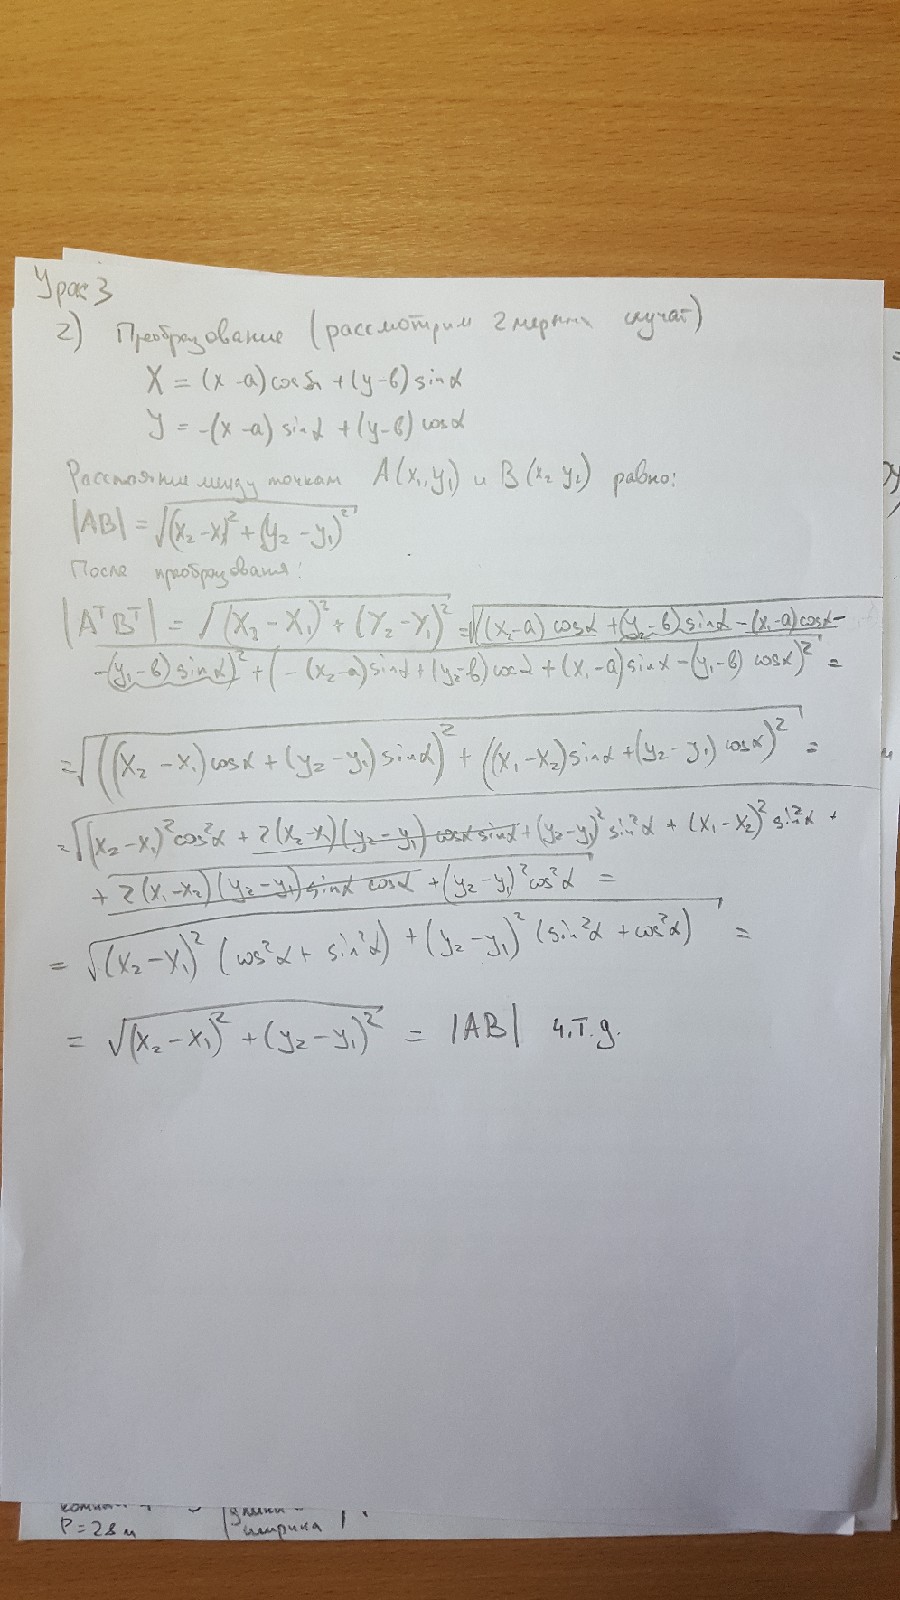 Урок 3
2) Преобразование (рассмотрим 2 мерный случай)
X = (x-a) cosα + (y-b) sinα
Y = -(x-a) sinα + (y-b) cosα
Расстояние между точкам A(x₁, y₁) и B(x₂ y₂) равно:
|AB| = √((x₂-x₁)² + (y₂-y₁)²)
После преобразования:
|AᵀBᵀ| = √((X₂-X₁)² + (Y₂-Y₁)²) = √((x₂-a) cosα + (y₂-b) sinα - (x₁-a) cosα -
-(y₁-b) sinα)² + (-(x₂-a) sinα + (y₂-b) cosα + (x₁-a) sinα - (y₁-b) cosα)² =
= √(((x₂-x₁) cosα + (y₂-y₁) sinα)² + ((x₁-x₂) sinα + (y₂-y₁) cosα)²) =
= √(x₂-x₁)² cos²α + 2(x₂-x₁)(y₂-y₁) cosα sinα + (y₂-y₁)² sin²α + (x₁-x₂)² sin²α +
+ 2(x₁-x₂)(y₂-y₁) sinα cosα + (y₂-y₁)² cos²α =
= √((x₂-x₁)² (cos²α + sin²α) + (y₂-y₁)² (sin²α + cos²α)) =
= √((x₂-x₁)² + (y₂-y₁)²) = |AB| ч.т.д.
P = 28 м
ширина